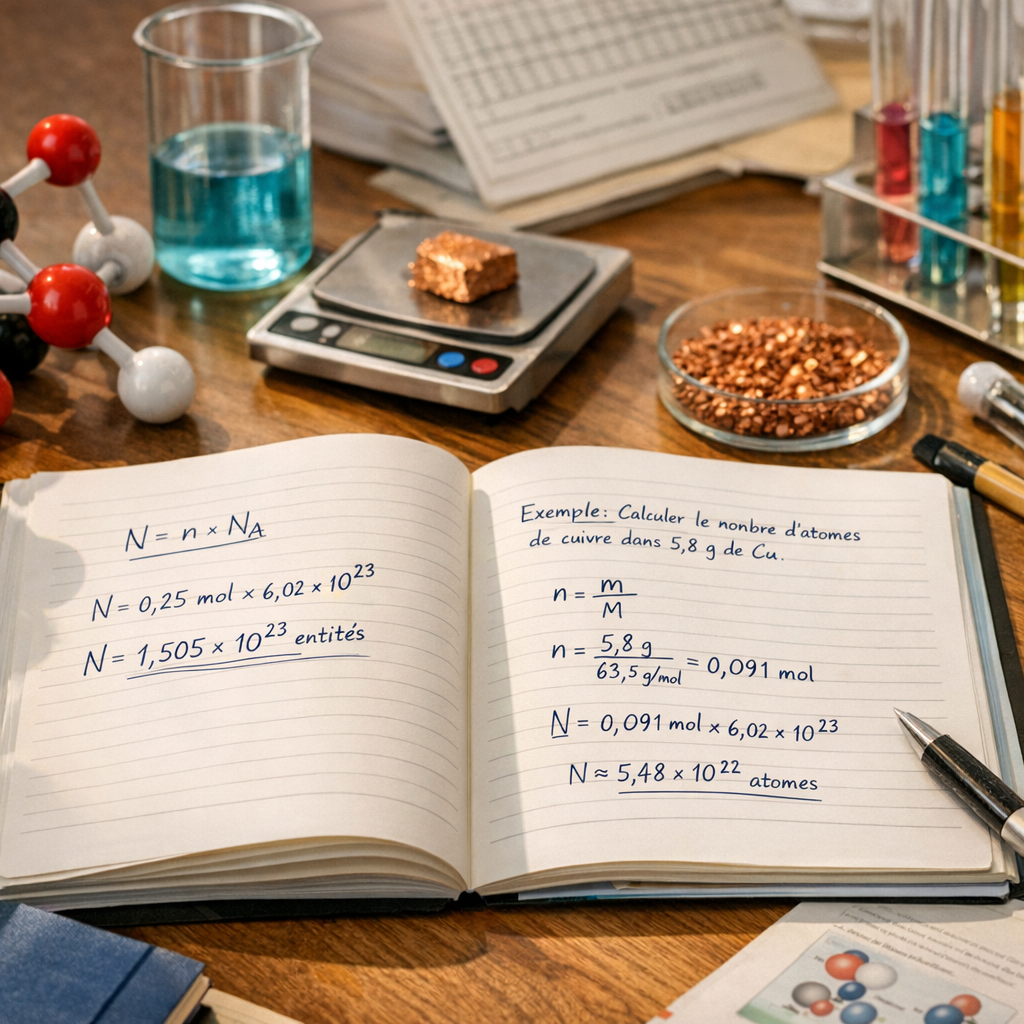 N = n × N_A
N = 0,25 mol × 6,02 × 10²³
N = 1,505 × 10²³ entités
Exemple: Calculer le nonbre d'atomes
de cuivre dans 5,8 g de Cu.
n = m / M
n = 5,8 g / 63,5 g/mol = 0,091 mol
N = 0,091 mol × 6,02 × 10²³
N ≈ 5,48 × 10²² atomes